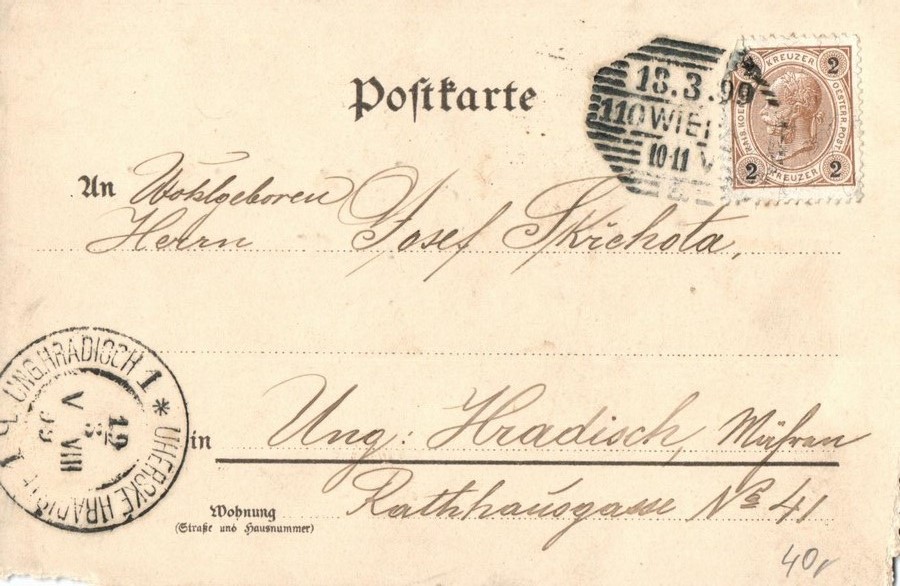 Postkarte
18.3.99
110 WIEN
10-11 V
KREUZER
2 2
OESTERR. POST
2 2
KREUZER
An Wohlgeboren
Herrn Josef Skřchota,
UNG. HRADISCH 1
* UHERSKÉ HRADIŠTĚ 1
19 3
V 99 VIII
in Ung: Hradisch, Mähren
Wohnung Rathhausgasse No 41
(Straße und Hausnummer)
40,